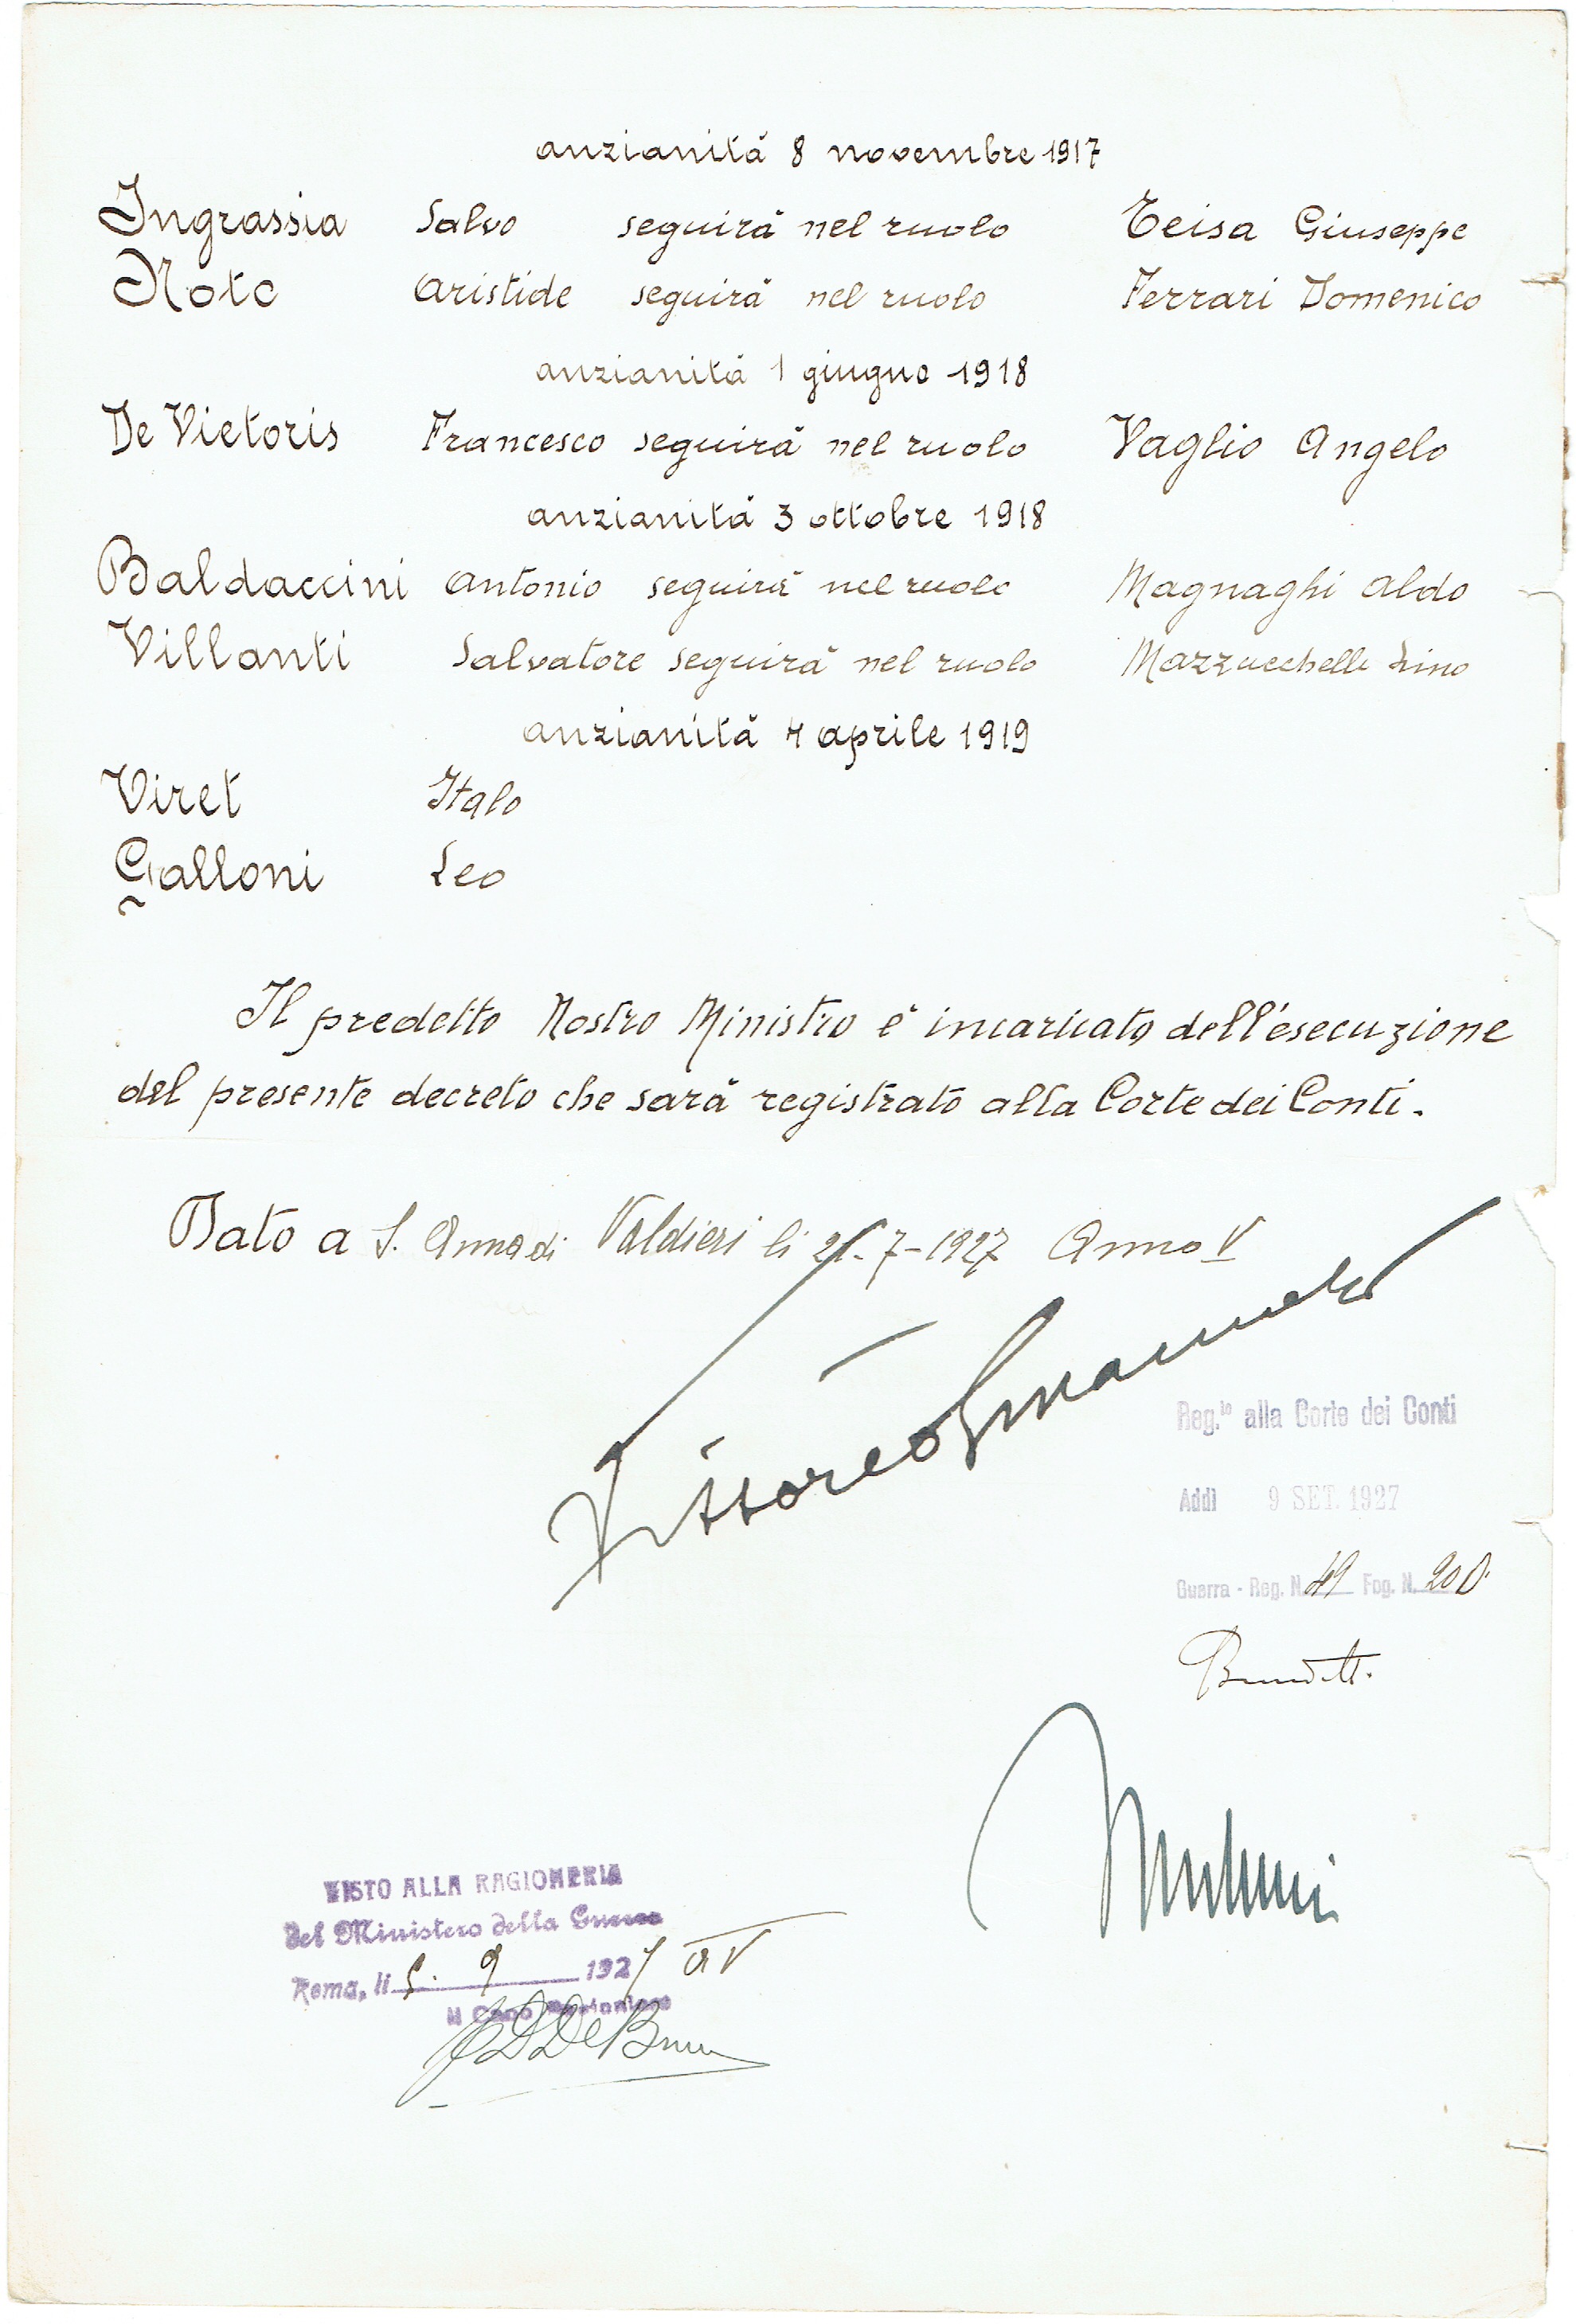 anzianità 8 novembre 1917
Ingrassia Salvo seguirà nel ruolo Teisa Giuseppe
Noto Aristide seguirà nel ruolo Ferrari Domenico
anzianità 1 giugno 1918
De Vietoris Francesco seguirà nel ruolo Vaglio Angelo
anzianità 3 ottobre 1918
Baldaccini Antonio seguirà nel ruolo Magnaghi Aldo
Villanti Salvatore seguirà nel ruolo Mazzucchelli Lino
anzianità 4 aprile 1919
Viret Italo
Galloni Leo
Il predetto Nostro Ministro è incaricato dell'esecuzione
del presente decreto che sarà registrato alla Corte dei Conti.
Dato a S. Anna di Valdieri li 21-7-1927 Anno V
Vittorio Emanuele
Reg.to alla Corte dei Conti
Addì 9 SET. 1927
Guerra - Reg. N. 49 Fog. N. 200
Mussolini
VISTO ALLA RAGIONERIA
del Ministero della Guerra
Roma, li 5. 9 1927 A V
Il Capo Ragioniere